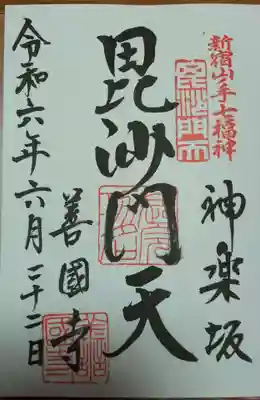 新宿山ノ手七福神
毘沙門天
神楽坂
毘沙門天
善國寺
令和六年六月二十二日